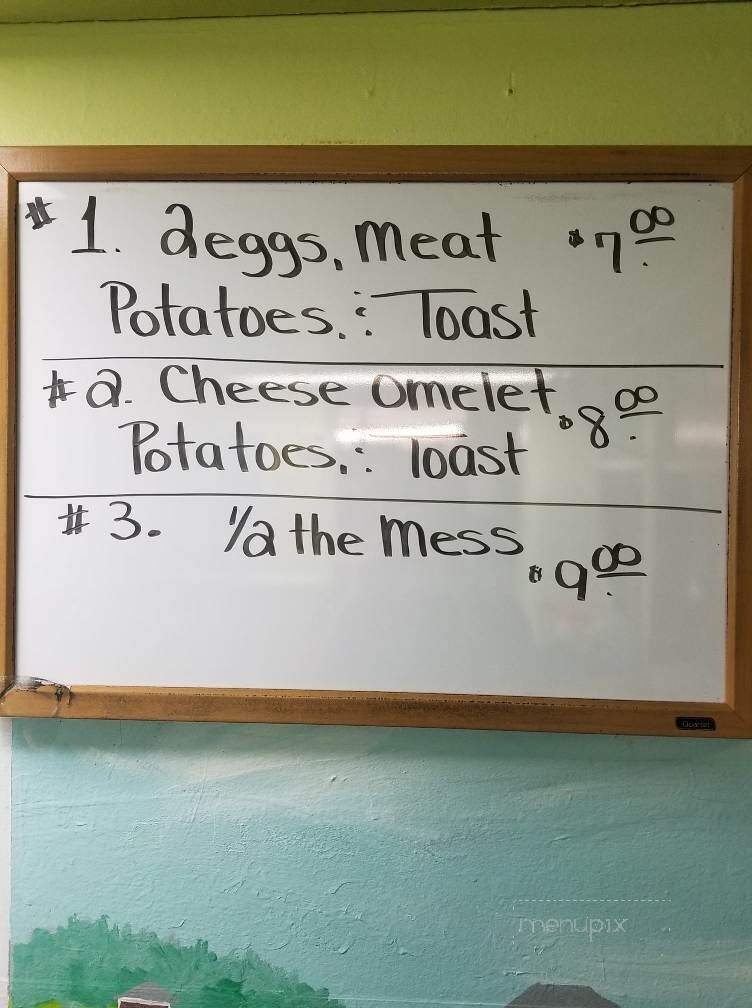 # 1. 2eggs, Meat $7.00
Potatoes, & Toast
#2. Cheese Omelet $8.00
Potatoes, & Toast
#3. 1/2 the Mess $9.00
Quartet
menupix